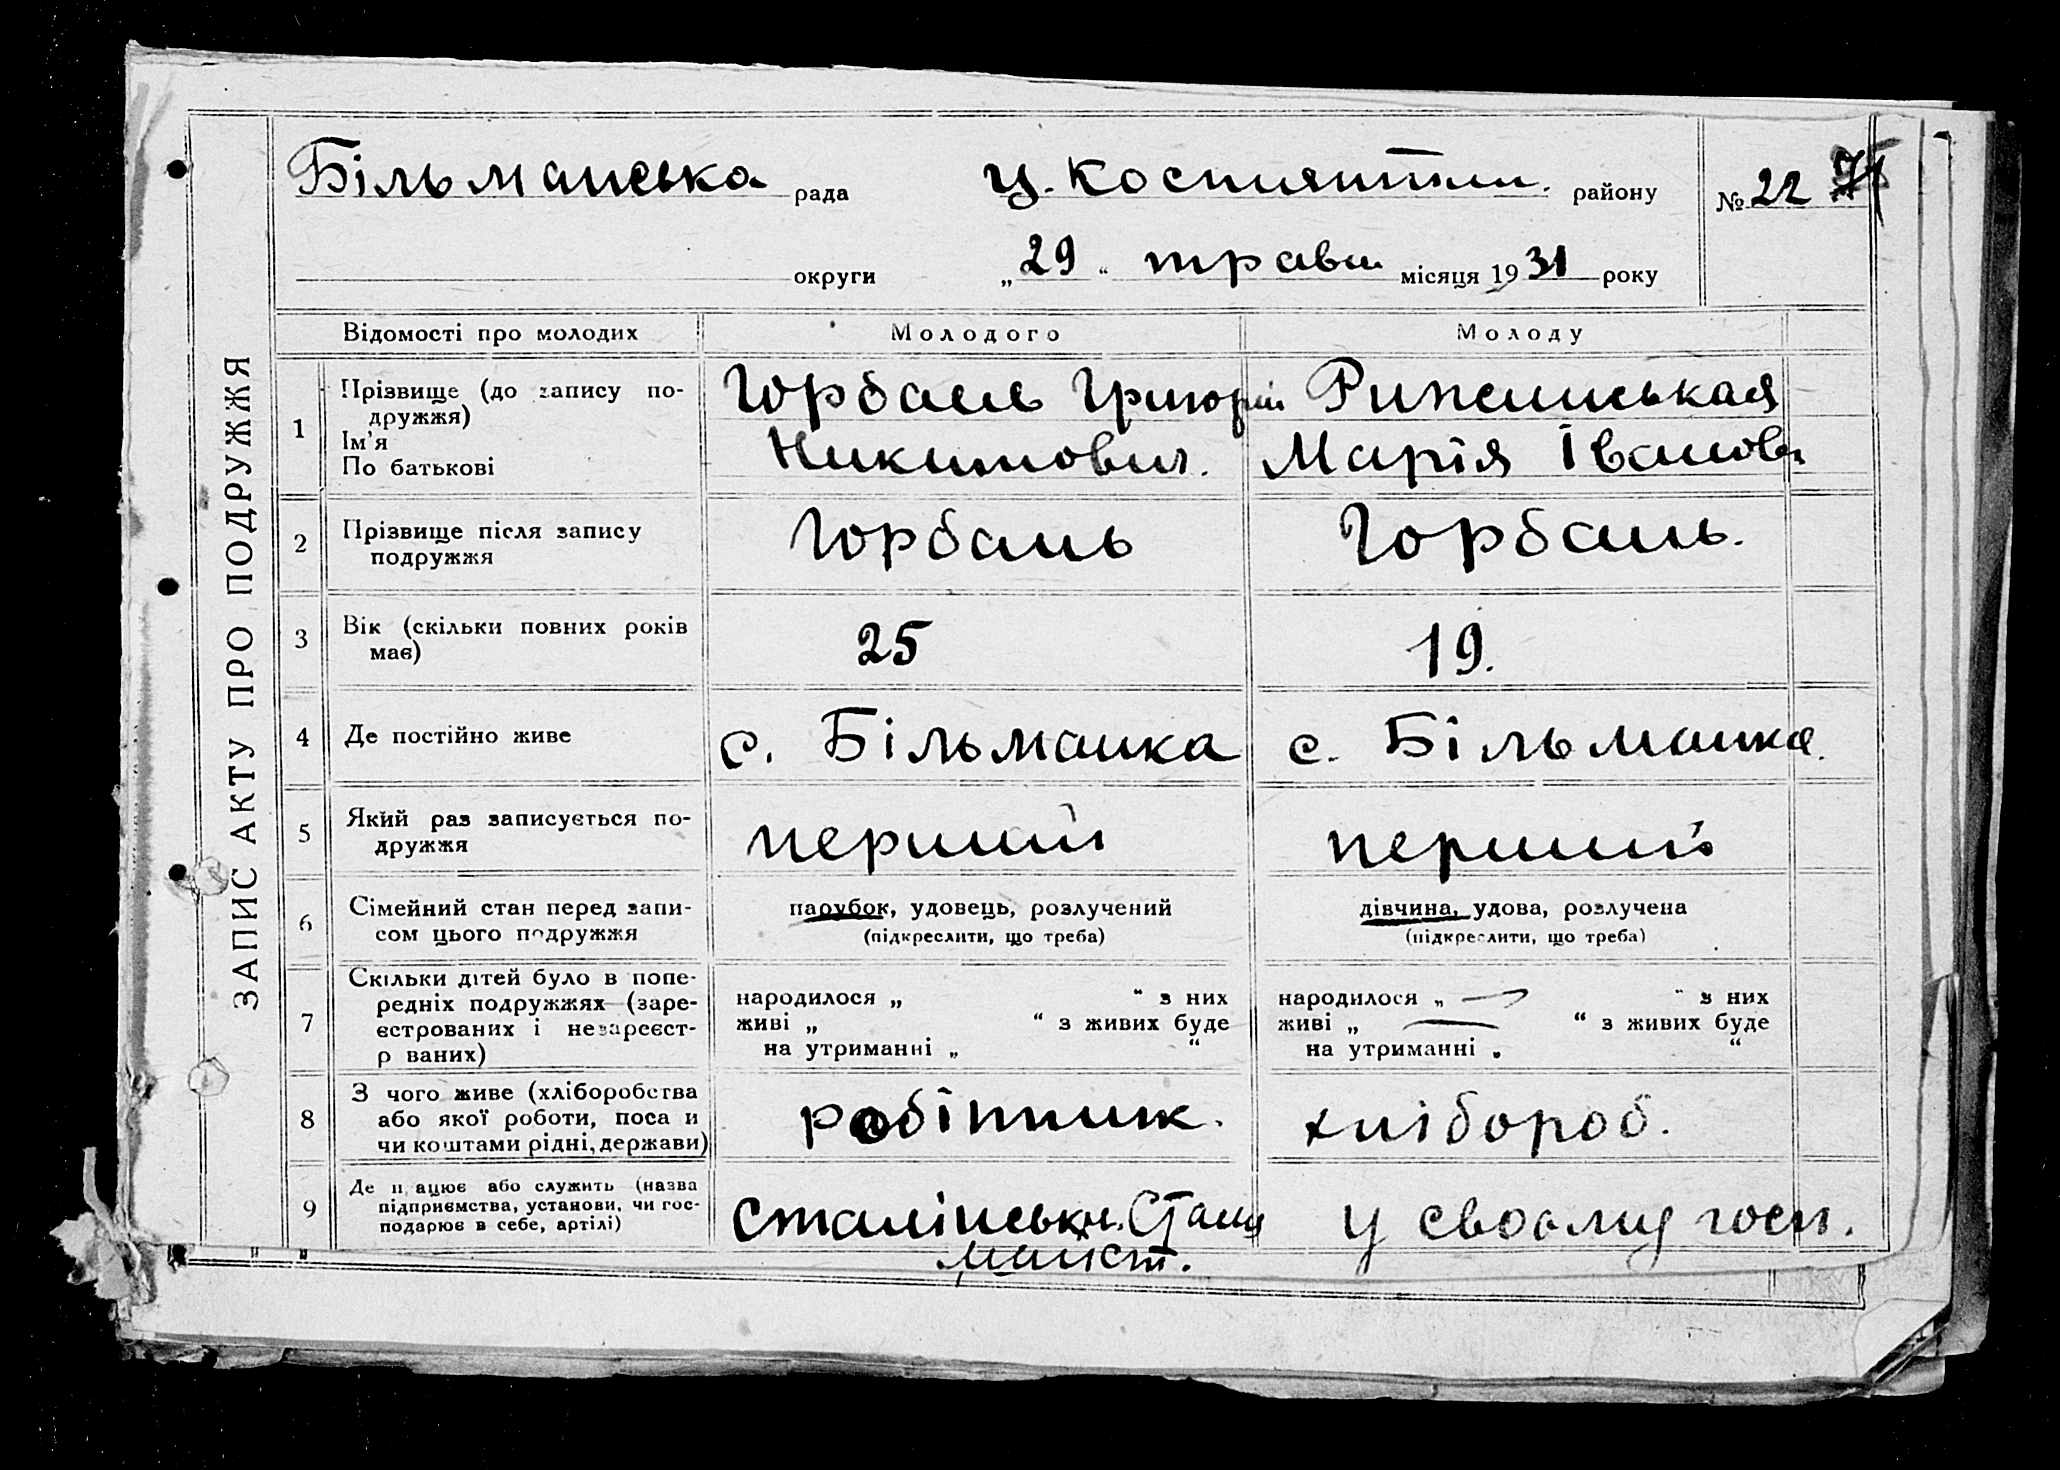 ЗАПИС АКТУ ПРО ПОДРУЖЖЯ
Більманська рада
району
№ 22
округи
„29“ травн місяця 1931 року
Відомості про молодих
Молодого
Молоду
1
Прізвище (до запису по-
дружжя)
Ім'я
По батькові
Горбань Григорій
Никитович.
Марія Іванов
2
Прізвище після запису
подружжя
Горбань
Горбань.
3
Вік (скільки повних років
має)
25
19.
4
Де постійно живе
с. Більманка
с. Більманка.
5
Який раз записується по-
дружжя
перший
перший
6
Сімейний стан перед запи-
сом цього подружжя
парубок, удовець, розлучений
(підкреслити, що треба)
дівчина, удова, розлучена
(підкреслити, що треба)
7
Скільки дітей було в попе-
редніх подружжях (заре-
єстрованих і незареєст-
р ваних)
народилося „ “ з них
живі „ “ з живих буде
на утриманні „ “
народилося „ — “ з них
живі „ — “ з живих буде
на утриманні „ “
8
З чого живе (хліборобства
або якої роботи, поса и
чи коштами рідні, держави)
робітник.
хлібороб.
9
Де п ацює або служить (назва
підприємства, установи, чи гос-
подарює в себе, артілі)
Сталінськ.
у своєму госп.